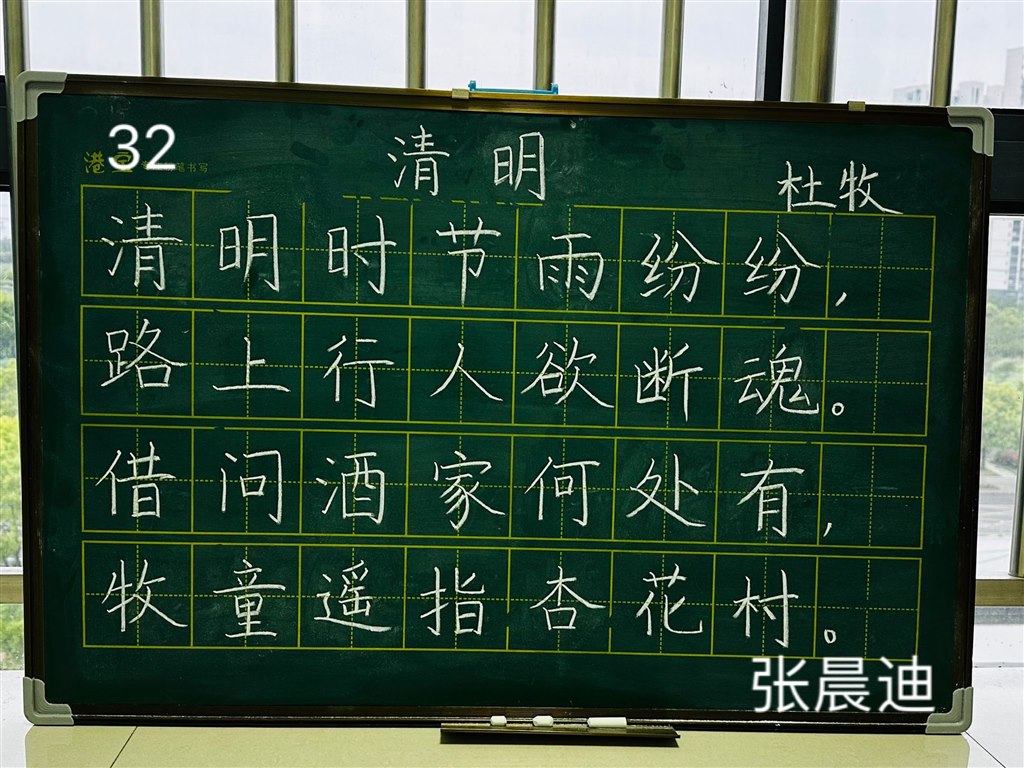 32
清明
杜牧
清明时节雨纷纷,
路上行人欲断魂。
借问酒家何处有,
牧童遥指杏花村。
张晨迪